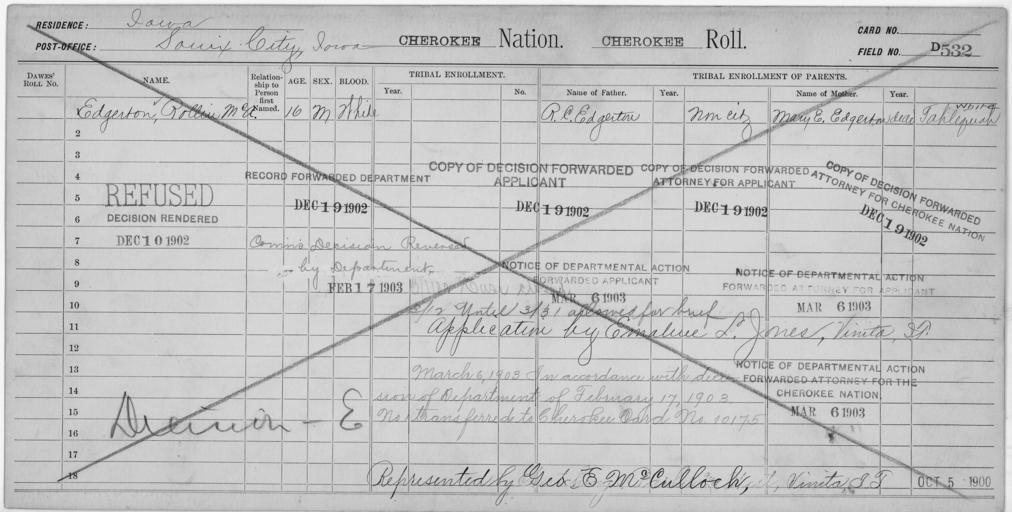 RESIDENCE: Iowa
POST-OFFICE: Souix City, Iowa
CHEROKEE Nation. CHEROKEE Roll.
CARD NO.
FIELD NO. D532
DAWES' ROLL NO.
NAME.
Relationship to Person first Named.
AGE.
SEX.
BLOOD.
TRIBAL ENROLLMENT.
Year.
No.
TRIBAL ENROLLMENT OF PARENTS.
Name of Father.
Year.
Name of Mother.
Year.
Edgerton, Rollin McC. 16 M White R.C. Edgerton Non citz Mary E. Edgerton dead Tahlequah
White
2
3
4
5
6
7
8
9
10
11
12
13
14
15
16
17
18
REFUSED
DECISION RENDERED
DEC 10 1902
RECORD FORWARDED DEPARTMENT
DEC 19 1902
COPY OF DECISION FORWARDED
APPLICANT
DEC 19 1902
COPY OF DECISION FORWARDED
ATTORNEY FOR APPLICANT
DEC 19 1902
COPY OF DECISION FORWARDED
ATTORNEY FOR CHEROKEE NATION
DEC 19 1902
Com'n's Decision Reversed
by Department
FEB 17 1903
NOTICE OF DEPARTMENTAL ACTION
FORWARDED APPLICANT
MAR 6 1903
NOTICE OF DEPARTMENTAL ACTION
FORWARDED ATTORNEY FOR APPLICANT
MAR 6 1903
3/12 Until 3/31 allowed for brief
Application by Emaline L. Jones, Vinita, I.T.
March 6, 1903 In accordance with deci-
sion of Department of February 17, 1903
No 1 transferred to Cherokee Card No. 10175
NOTICE OF DEPARTMENTAL ACTION
FORWARDED ATTORNEY FOR THE
CHEROKEE NATION.
MAR 6 1903
Decision - E
Represented by Geo. E. McCulloch, Vinita, I T
OCT 5 1900